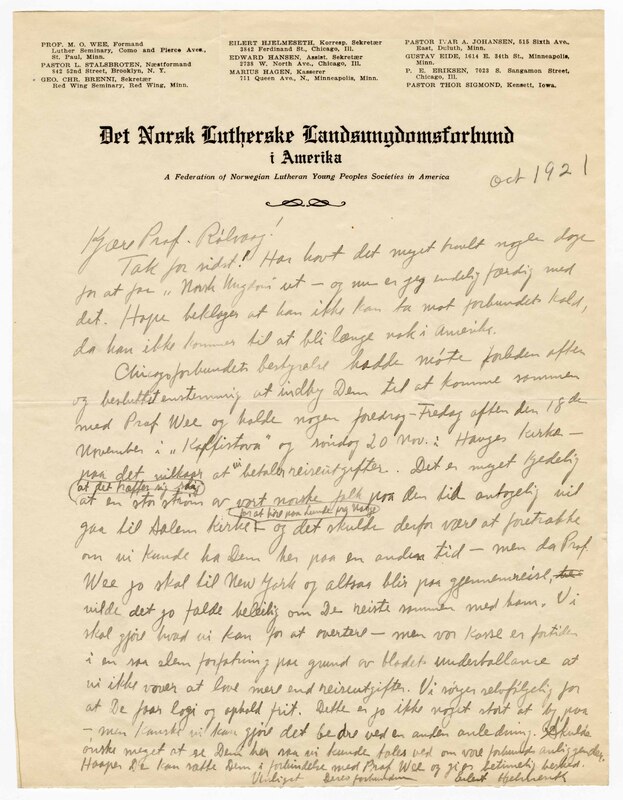 PROF. M. O. WEE, Formand
Luther Seminary, Como and Pierce Aves.,
St. Paul, Minn.
PASTOR L. STALSBROTEN, Næstformand
842 52nd Street, Brooklyn, N. Y.
GEO. CHR. BRENNI, Sekretær
Red Wing Seminary, Red Wing, Minn.
EILERT HJELMESETH, Korresp. Sekretær
3842 Ferdinand St., Chicago, Ill.
EDWARD HANSEN, Assist. Sekretær
2735 W. North Ave., Chicago, Ill.
MARIUS HAGEN, Kasserer
711 Queen Ave., N., Minneapolis, Minn.
PASTOR IVAR A. JOHANSEN, 515 Sixth Ave.,
East, Duluth, Minn.
GUSTAV EIDE, 1614 E. 34th St., Minneapolis,
Minn.
P. E. ERIKSEN, 7023 S. Sangamon Street,
Chicago, Ill.
PASTOR THOR SIGMOND, Kensett, Iowa.
Det Norsk Lutherske Landsungdomsforbund
i Amerika
A Federation of Norwegian Lutheran Young Peoples Societies in America
Oct 1921
Kjære Prof. Rölvaag!
Tak for sidst! Har havt det meget travlt nogen dage
for at faa "Norsk Ungdom" ut – og nu er jeg endelig færdig med
det. Hope beklager at han ikke kan ta mot forbundets kald,
da han ikke kommer til at bli længe nok i Amerika.
Chicagoforbundets bestyrelse hadde möte forleden aften
og besluttet enstemmig at indby Dem til at komme sammen
med Prof Wee og holde nogen foredrag – Fredag aften den 18de
November i "Kaffistova" og söndag 20 Nov. i Hauges Kirke –
paa det vilkaar at vi betaler reiseutgifter. Det er meget kjedelig
at det træffer sig slig
at en stor ström av vort norske folk paa den tid antagelig vil
gaa til Salem Kirke og det skulde derfor være at foretrække
om vi kunde ha Dem her paa en anden tid – men da Prof.
Wee jo skal til New York og altsaa blir paa gjennemreise,
vilde det jo falde beleilig om De reiste sammen med ham. Vi
skal gjöre hvad vi kan for at avertere – men vor kasse er fortiden
i en saa slem forfatning paa grund av bladets underballance at
vi ikke vover at love mere end reiseutgifter. Vi sörger selvfölgelig for
at De faar logi og ophold frit. Dette er jo ikke noget stort at by paa
– men kanske vi kan gjöre det bedre ved en anden anledning. Skulde
önske meget at se Dem her saa vi kunde tales ved om vore forbunds anliggender.
Haaper De kan sætte Dem i forbindelse med Prof Wee og gi os betimelig beskjed.
Venligst Deres forbundne
Eilert Hjelmeseth